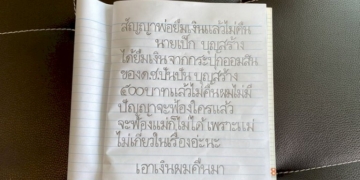 สัญญาพ่อยืมเงินแล้วไม่คืน
นายเป๊ก บุญสร้าง
ได้ยืมเงิน จากกระปุกออมสิน
ของด.ช.ปั้นปั้น บุญสร้าง
๕๐๐บาทแล้วไม่คืนผมไม่มี
ปัญญาจะฟ้องใครแล้ว
จะฟ้องแม่ก็ไม่ได้ เพราะแม่
ไม่เกี่ยวในเรื่องอะนะ
เอาเงินผมคืนมา